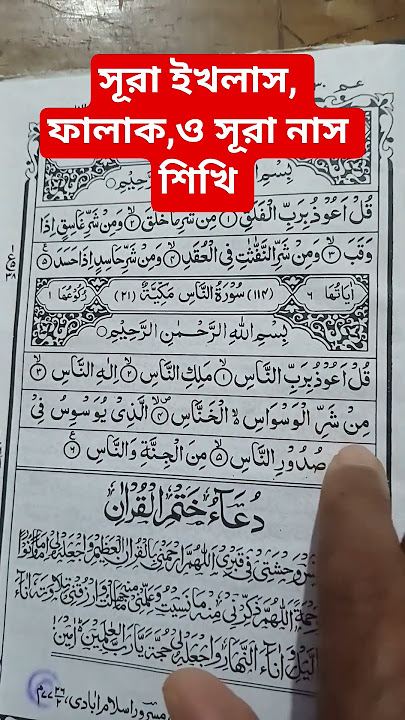 সূরা ইখলাস,
ফালাক,ও সূরা নাস
শিখি
عم ٣٠
بِسْمِ اللهِ الرَّحْمٰنِ الرَّحِيْمِ
قُلْ اَعُوْذُ بِرَبِّ الْفَلَقِ ۙ۱ مِنْ شَرِّ مَا خَلَقَ ۙ۲ وَمِنْ شَرِّ غَاسِقٍ اِذَا
وَقَبَ ۙ۳ وَمِنْ شَرِّ النَّفّٰثٰتِ فِی الْعُقَدِ ۙ۴ وَمِنْ شَرِّ حَاسِدٍ اِذَا حَسَدَ ۵
اٰیَاتُهَا ۶ (۱۱۴) سُوْرَةُ النَّاسِ مَكِّيَّةٌ (۲۱) رُكُوْعُهَا ۱
بِسْمِ اللهِ الرَّحْمٰنِ الرَّحِيْمِ
قُلْ اَعُوْذُ بِرَبِّ النَّاسِ ۙ۱ مَلِكِ النَّاسِ ۙ۲ اِلٰهِ النَّاسِ ۙ۳
مِنْ شَرِّ الْوَسْوَاسِ ەۙ الْخَنَّاسِ ۴ الَّذِیْ یُوَسْوِسُ فِیْ
صُدُوْرِ النَّاسِ ۙ۵ مِنَ الْجِنَّةِ وَالنَّاسِ ۶
دُعَآءُ خَتْمِ الْقُرْاٰنِ
وَحْشَتِیْ فِیْ قَبْرِیْ اَللّٰهُمَّ ارْحَمْنِیْ بِالْقُرْاٰنِ الْعَظِیْمِ وَاجْعَلْهُ لِیْ اِمَامًا وَّنُوْرًا
رَحْمَةً اَللّٰهُمَّ ذَكِّرْنِیْ مِنْهُ مَا نَسِیْتُ وَعَلِّمْنِیْ مِنْهُ مَا جَهِلْتُ وَارْزُقْنِیْ تِلَاوَتَهٗ اٰنَآءَ
الَّیْلِ وَاٰنَآءَ النَّهَارِ وَاجْعَلْهُ لِیْ حُجَّةً یَّا رَبَّ الْعٰلَمِیْنَ اٰمِیْن
مسرور اسلام آبادی